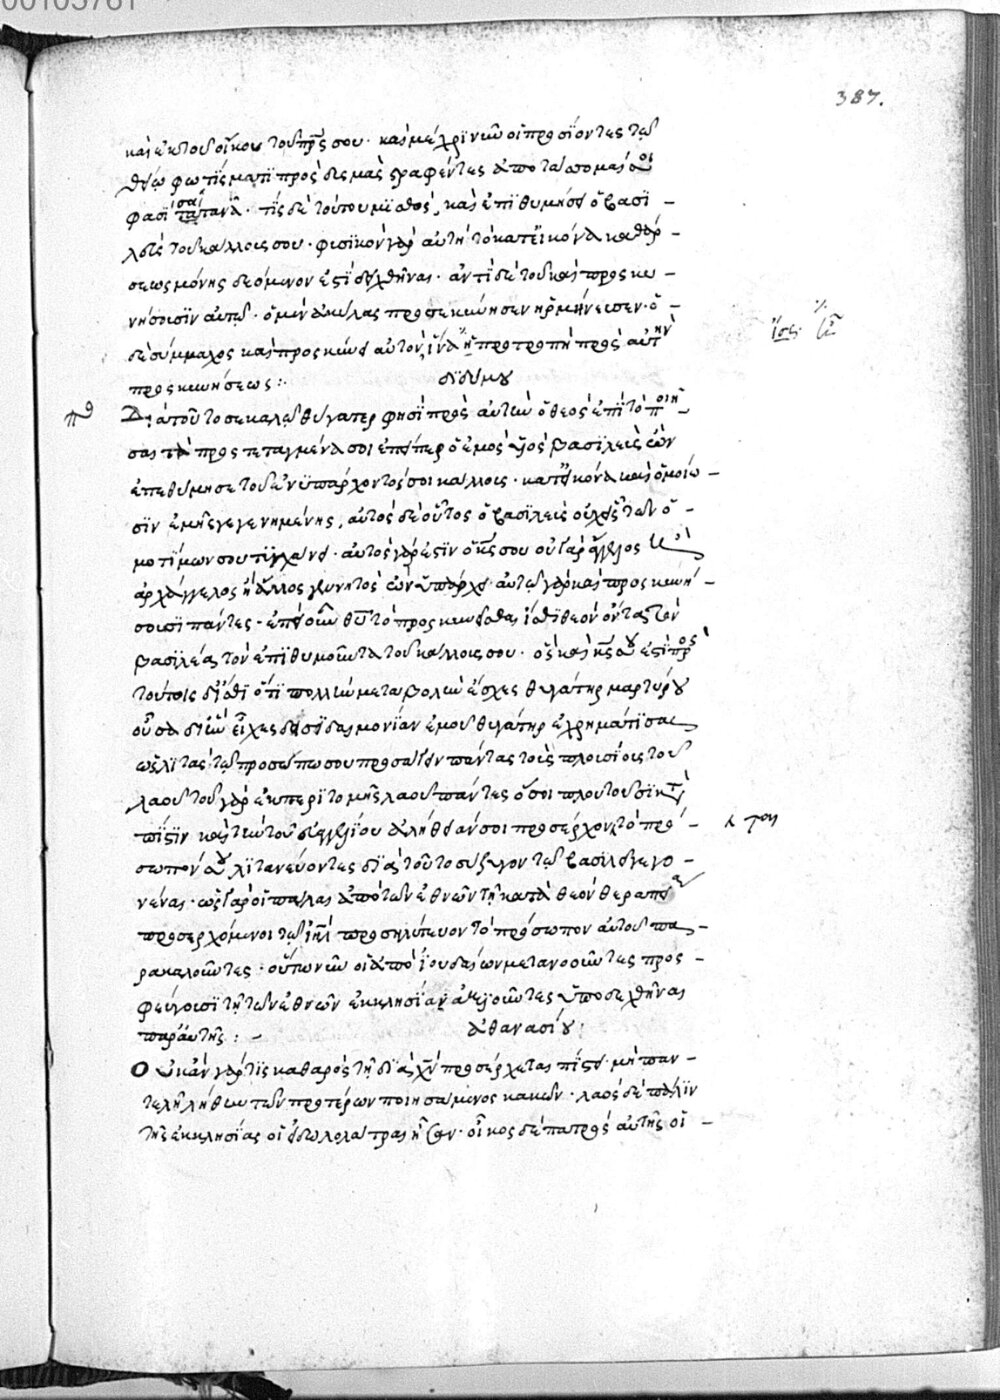 00103761
387.
καὶ ἐκ τοῦ οἴκου τοῦ πρς σου· καὶ μέχρι νῦν οἱ προσιόντες τῷ
θείῳ φωτίσματι πρὸς δεσμὰς γραφέντες ἀποτάσσομαί σοι
φασὶ σατανᾶ· τίς δὲ τούτου μισθός, καὶ ἐπιθυμήσει ὁ βασι-
λεὺς τοῦ κάλλους σου· φυσικὸν γὰρ αὐτῇ τὸ κατ' εἰκόνα καθάρ-
σεως μόνης δεόμενον ἐστὶ δειχθῆναι· ἀντὶ δὲ τοῦ καὶ προσκυ-
νήσουσιν αὐτῷ· ὁ μὲν ἀκύλας προσεκύνησεν ἡρμήνευσεν· ὁ-
δὲ σύμμαχος καὶ προσκύνει αὐτὸν, ἵνα ᾖ προτροπὴ πρὸς αὐτὴν
προσκυνήσεως:· διδύμου
Διατοῦτο σε καλῶ θύγατερ φησὶ πρὸς αὐτὴν ὁ θεὸς ἐπὶ τὸ ποιῆ-
σαι τὰ προστεταγμένα σοι ἐπείπερ ὁ ἐμὸς υἱὸς βασιλεὺς ὢν
ἐπεθύμησε τοῦ ἐνυπάρχοντός σοι κάλλους· κατ' εἰκόνα καὶ ὁμοίω-
σιν ἐμῆς γεγενημένης, αὐτὸς δὲ οὗτος ὁ βασιλεὺς οὐχ εἷς τῶν ὁ-
μοτίμων σου τυγχάνει· αὐτὸς γάρ ἐστιν ὁ κς σου οὐ γὰρ ἄγγελος
ἀρχάγγελος ἢ ἄλλος γεννητὸς ὢν ὑπάρχει· αὐτῷ γὰρ καὶ προσκυνή-
σουσι πάντες· ἐπεὶ οὖν θυ τὸ προσκυνεῖσθαι ἴσθι θεὸν ὄντα τὸν
βασιλέα τὸν ἐπιθυμοῦντα τοῦ κάλλους σου· ὃς καὶ κς σου ἐστὶ πρὸς
τούτοις δ' ἴσθι ὅτι πολλὴν μεταβολὴν ἔσχες θυγάτηρ μαρτυρου
οὖσα δι' ἣν εἶχες δεισιδαιμονίαν ἐμοῦ θυγάτηρ ἐχρημάτισας
ὡς λιτὰς τῷ προσώπῳ σου προσάγειν πάντας τοὺς πλουσίους τοῦ
λαοῦ τοῦ γὰρ ἐκ περιτομῆς λαοῦ πάντες ὅσοι πλουτοῦσι κατὰ
πίστιν καὶ τὴν τοῦ εὐαγγελίου ἀλήθειάν σοι προσέρχονται τὸ πρό-
σωπόν σου λιτανεύοντες διὰ τοῦτο σύζυγον τῷ βασιλεῖ γεγο-
νέναι· ὡς γὰρ οἱ πάλαι ἀπὸ τῶν ἐθνῶν τῇ κατὰ θεὸν θεραπεία
προσερχόμενοι τῷ ιηλ προσηλύτευον τὸ πρόσωπον αὐτοῦ πα-
ρακαλοῦντες· οὕτω νῦν οἱ ἀπὸ ἰουδαίων μετανοοῦντες προς-
φεύγουσι τῇ τῶν ἐθνῶν ἐκκλησίᾳ ἀξιοῦντες ὑποδεχθῆναι
παρ' αὐτῆς:- ἀθανασίου:
Οὐκ ἂν γάρ τις καθαρὸς τῇ διὰ χν προσέρχεται πίστει· μὴ παν-
τελῆ λήθην τῶν προτέρων ποιησάμενος κακῶν· λαὸς δὲ πάλιν
τῆς ἐκκλησίας οἱ εἰδωλολάτραι ἦσαν· οἶκος δὲ πατρὸς αὐτῆς οἱ-